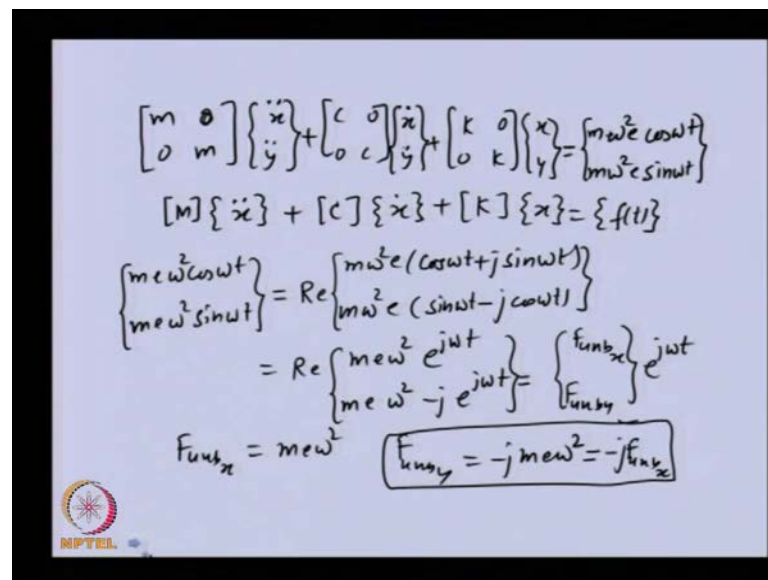 [m 0; 0 m] {ẍ; ÿ} + [c 0; 0 c] {ẋ; ẏ} + [k 0; 0 k] {x; y} = {mω²e cosωt; mω²e sinωt}
[M]{ẍ} + [C]{ẋ} + [K]{x} = {f(t)}
{meω²cosωt; meω²sinωt} = Re{mω²e(cosωt+j sinωt); mω²e (sinωt-j cosωt)}
= Re{meω² e^{jωt}; meω² -j e^{jωt}} = {f_{unb_x}; F_{unby}} e^{jωt}
F_{unb_x} = meω² F_{unby} = -j meω² = -j f_{unb_x}
NPTEL